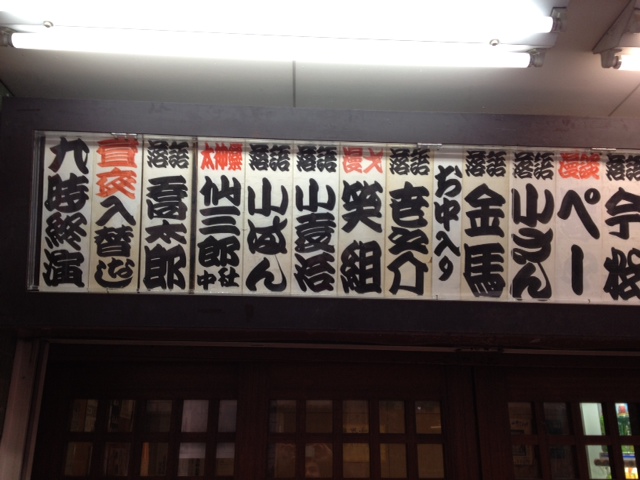 落語 今松
漫談 ぺー
落語 小さん
落語 金馬
お中入り
落語
漫才 笑組
落語 小袁治
落語 小はん
太神楽 仙三郎社中
落語 喬太郎
昼夜入替なし
九時終演